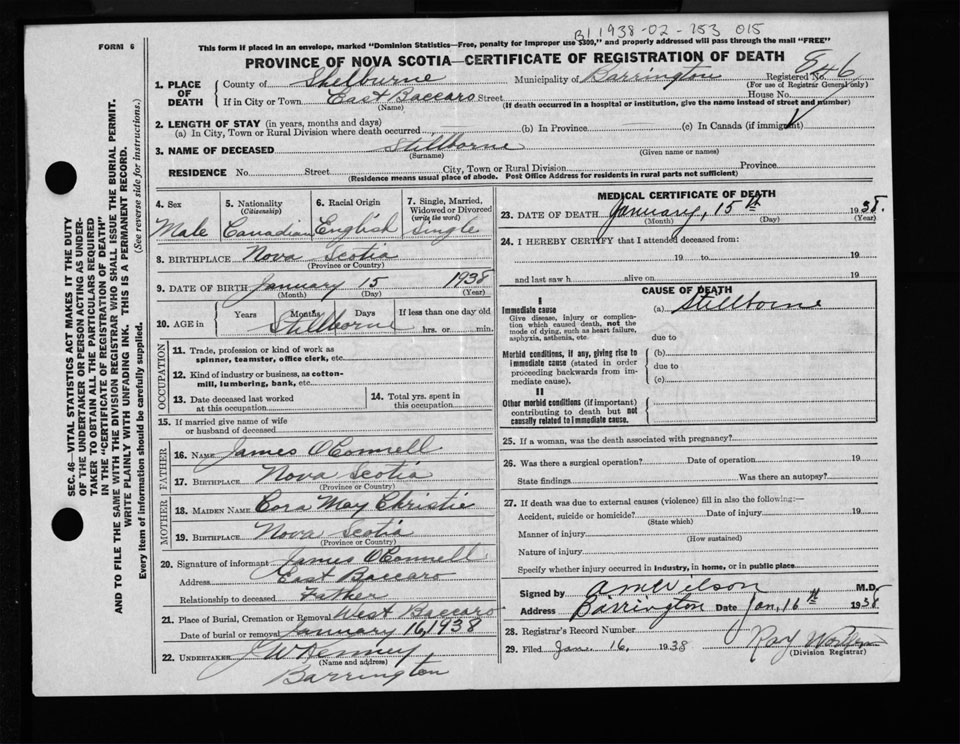 B1 1938-02-153 015
FORM 6
This form if placed in an envelope, marked "Dominion Statistics—Free, penalty for improper use $300," and properly addressed will pass through the mail "FREE"
PROVINCE OF NOVA SCOTIA—CERTIFICATE OF REGISTRATION OF DEATH
1. PLACE OF DEATH
County of Shelburne Municipality of Barrington Registered No. 846
(For use of Registrar General only)
If in City or Town East Baccaro Street House No.
(Name) (If death occurred in a hospital or institution, give the name instead of street and number)
2. LENGTH OF STAY (in years, months and days)
(a) In City, Town or Rural Division where death occurred (b) In Province (c) In Canada (if immigrant)
3. NAME OF DECEASED Stillborne
(Surname) (Given name or names)
RESIDENCE No. Street City, Town or Rural Division Province
(Residence means usual place of abode. Post Office Address for residents in rural parts not sufficient)
4. Sex 5. Nationality (Citizenship) 6. Racial Origin 7. Single, Married, Widowed or Divorced (write the word)
Male Canadian English Single
8. BIRTHPLACE Nova Scotia
(Province or Country)
9. DATE OF BIRTH January 15 1938
(Month) (Day) (Year)
10. AGE in Years Months Days If less than one day old
Stillborne hrs. or min.
OCCUPATION
11. Trade, profession or kind of work as
spinner, teamster, office clerk, etc.
12. Kind of industry or business, as cotton-
mill, lumbering, bank, etc.
13. Date deceased last worked
at this occupation
14. Total yrs. spent in
this occupation
15. If married give name of wife
or husband of deceased
FATHER
16. NAME James O'Connell
17. BIRTHPLACE Nova Scotia
(Province or Country)
MOTHER
18. MAIDEN NAME Cora May Christie
19. BIRTHPLACE Nova Scotia
(Province or Country)
20. Signature of informant James O'Connell
Address East Baccaro
Relationship to deceased Father
21. Place of Burial, Cremation or Removal West Baccaro
Date of burial or removal January 16, 1938
22. UNDERTAKER J W Kenney,
(Name and address)
Barrington
MEDICAL CERTIFICATE OF DEATH
23. DATE OF DEATH January, 15th 1938.
(Month) (Day) (Year)
24. I HEREBY CERTIFY that I attended deceased from:
19 to 19
and last saw h alive on 19
CAUSE OF DEATH
I
Immediate cause (a) Stillborne
Give disease, injury or complica-
tion which caused death, not the
mode of dying, such as heart failure,
asphyxia, asthenia, etc. due to
Morbid conditions, if any, giving rise to (b)
immediate cause (stated in order due to
proceeding backwards from im-
mediate cause). (c)
II
Other morbid conditions (if important)
contributing to death but not
causally related to immediate cause.
25. If a woman, was the death associated with pregnancy?
26. Was there a surgical operation? Date of operation 19
State findings Was there an autopsy?
27. If death was due to external causes (violence) fill in also the following:—
Accident, suicide or homicide? Date of injury 19
(State which)
Manner of injury
(How sustained)
Nature of injury
Specify whether injury occurred in industry, in home, or in public place
Signed by A M Wilson M.D.
Address Barrington Date Jan, 16th 1938
28. Registrar's Record Number
29. Filed Jan. 16, 1938 Ray
(Division Registrar)
SEC. 46—VITAL STATISTICS ACT MAKES IT THE DUTY
OF THE UNDERTAKER OR PERSON ACTING AS UNDER-
TAKER TO OBTAIN ALL THE PARTICULARS REQUIRED
IN THE "CERTIFICATE OF REGISTRATION OF DEATH"
AND TO FILE THE SAME WITH THE DIVISION REGISTRAR WHO SHALL ISSUE THE BURIAL PERMIT.
WRITE PLAINLY WITH UNFADING INK. THIS IS A PERMANENT RECORD.
Every item of information should be carefully supplied. (See reverse side for instructions.)